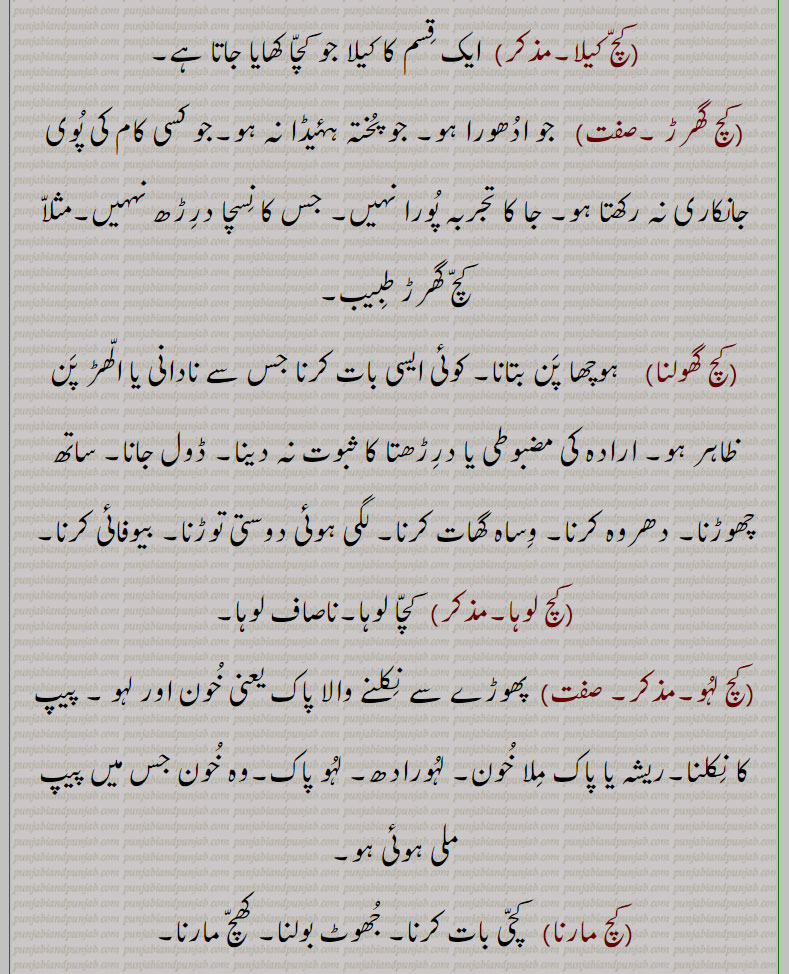 (کچّ کیلا۔ مذکر) ایک قِسم کا کیلا جو کچّا کھایا جاتا ہے۔
(کچ گھرڑ ۔صفت) جو ادُھورا ہو۔ جو پُختہ ہئیڈا نہ ہو۔جو کسی کام کی پُوی
جانکاری نہ رکھتا ہو۔ جا کا تجربہ پُورا نہیں۔ جس کا نِسچا درِڑھ نہیں۔مثلاّ
کچّ گھرڑ طبِیب۔
(کچ گھولنا) ہوچھا پَن بتانا۔ کوئی ایسی بات کرنا جس سے نادانی یا الّھڑ پَن
ظاہر ہو۔ ارادہ کی مضبوطی یا درِڑھتا کا ثبوت نہ دینا۔ ڈول جانا۔ ساتھ
چھوڑنا۔ دھروہ کرنا۔ وِساہ گھات کرنا۔ لگی ہوئی دوستی توڑنا۔ بیوفائی کرنا۔
(کچ لوہا۔مذکر) کچّا لوہا۔ناصاف لوہا۔
(کچ لہُو۔مذکر۔ صفت) پھوڑے سے نِکلنے والا پاک یعنی خُون اور لہو ۔ پیپ
کا نِکلنا۔ریشہ یا پاک مِلا خُون۔ لہُورادھ۔ لہُو پاک۔وہ خُون جس میں پیپ
ملی ہوئی ہو۔
(کچ مارنا) کچّی بات کرنا۔ جُھوٹ بولنا۔ کھچّ مارنا۔